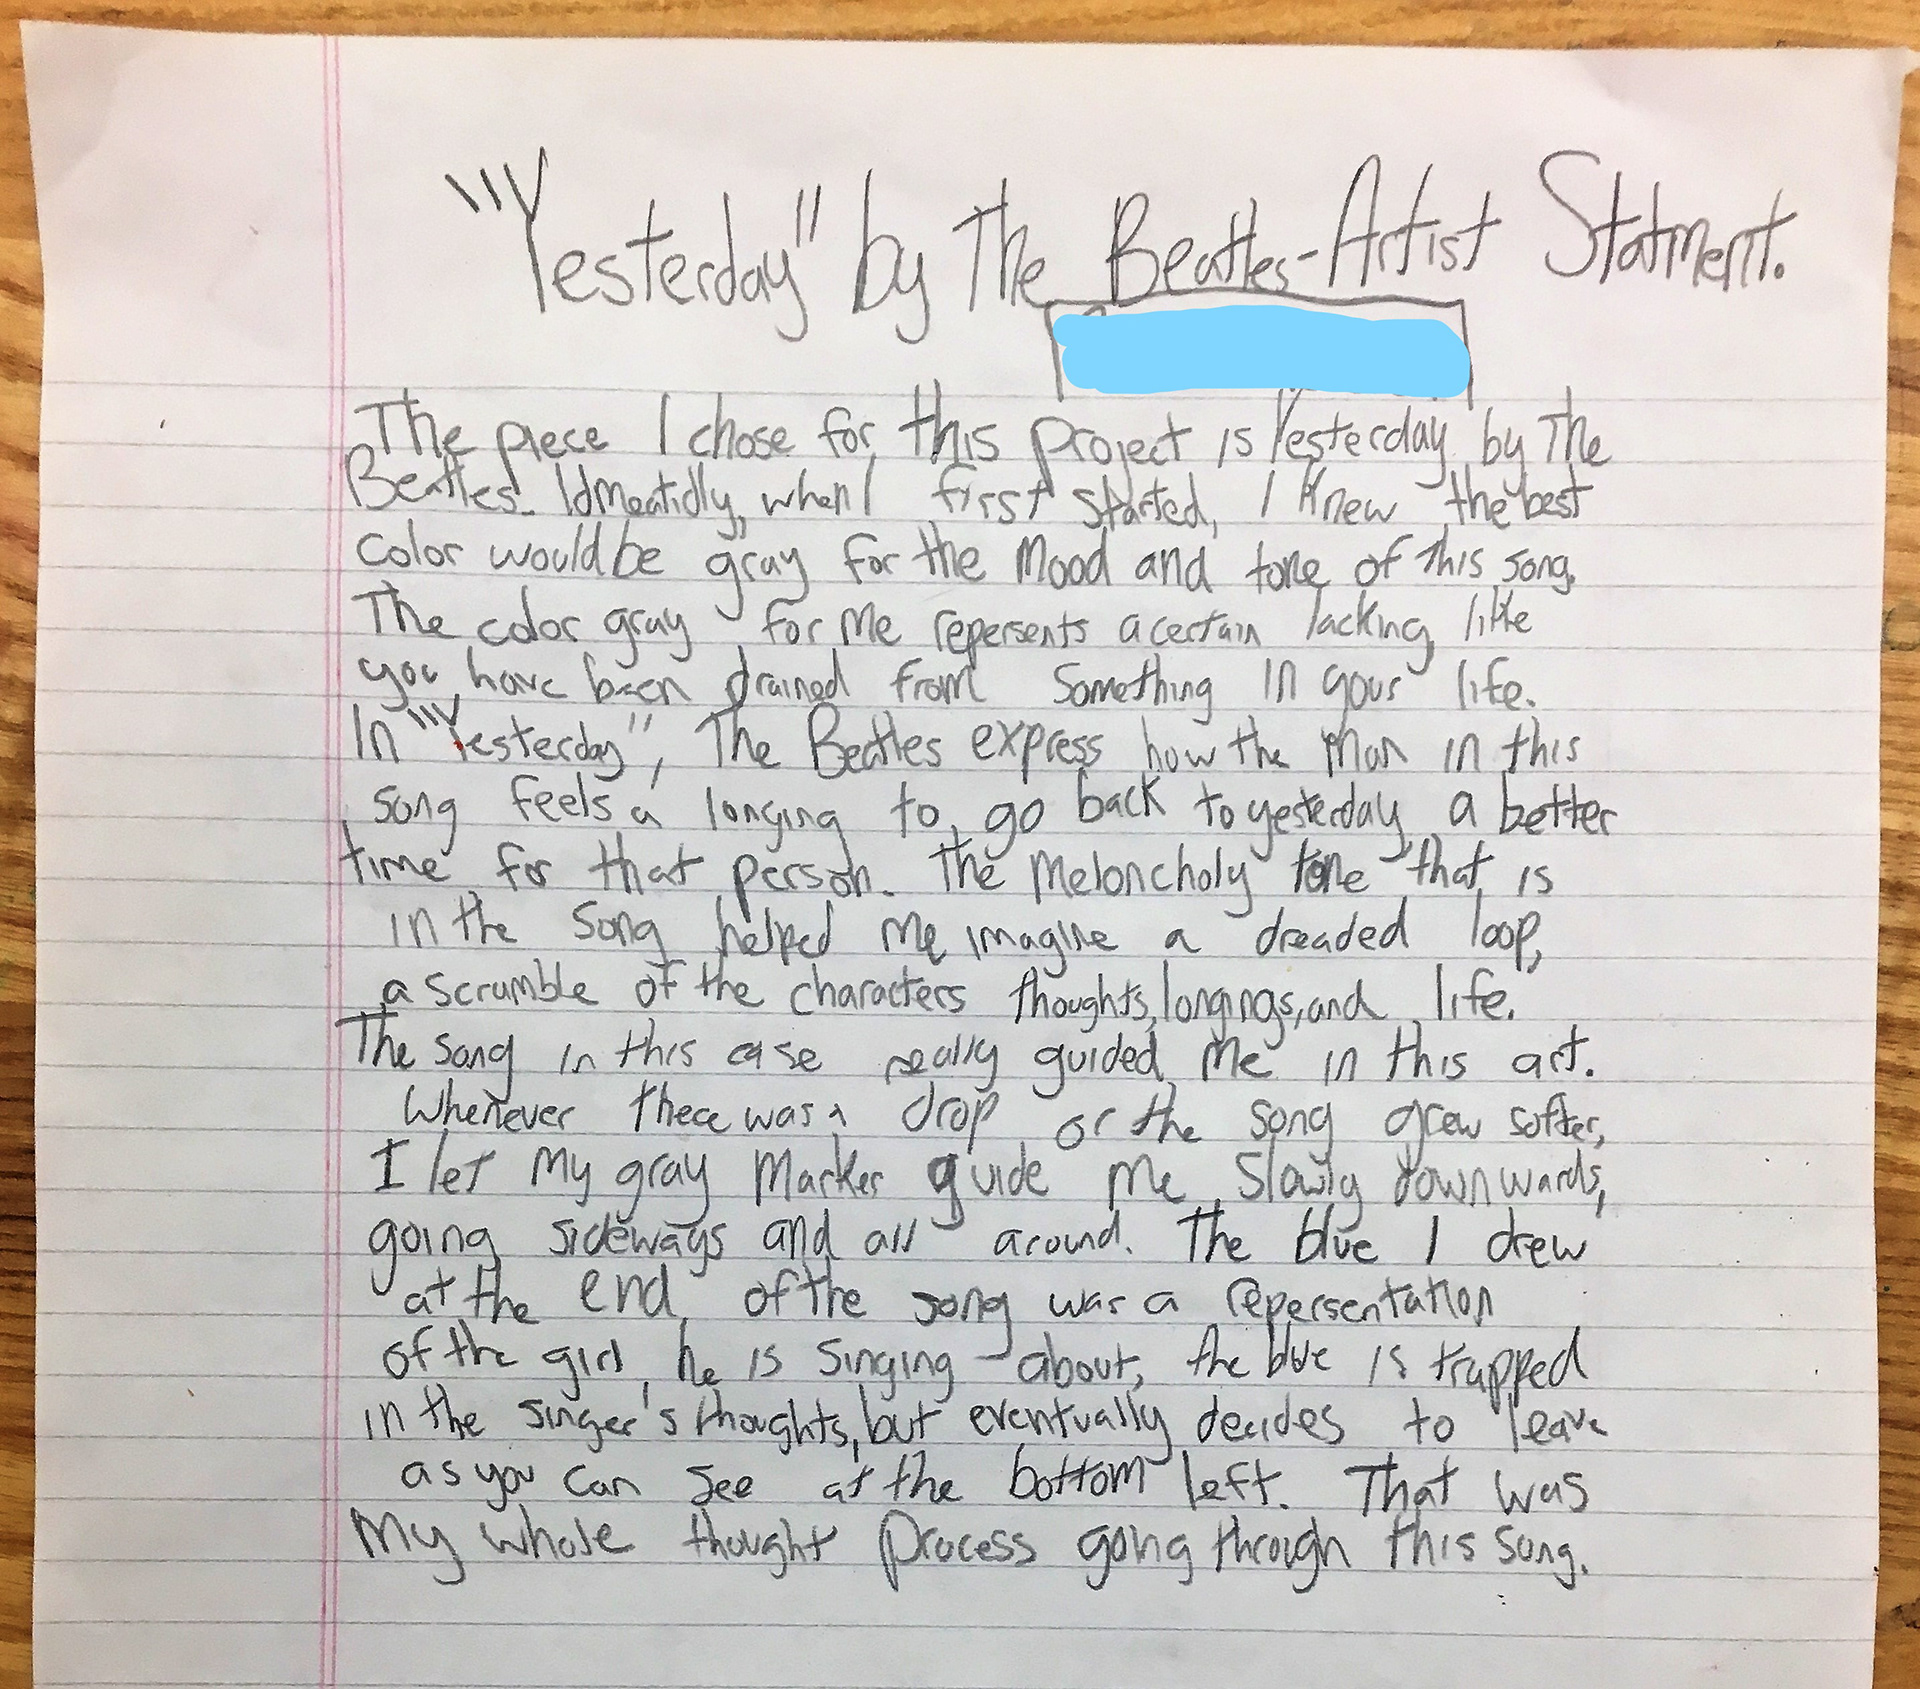 "Yesterday" by The Beatles-Artist Statment.
The piece I chose for this project is Yesterday by The
Beatles. Idmeatidly, when I first started, I knew the best
color would be gray for the mood and tone of this song.
The color gray for me repersents a certain lacking, like
you have been drained from something in your life.
In "Yesterday", The Beatles express how the man in this
song feels a longing to go back to yesterday, a better
time for that person. The meloncholy tone that is
in the song helped me imagine a dreaded loop,
a scrumble of the characters thoughts, longings, and life.
The song in this case really guided me in this art.
Whenever there was a drop or the song grew softer,
I let my gray marker guide me slowly downwards,
going sideways and all around. The blue I drew
at the end of the song was a repersentation
of the girl he is singing about, the blue is trapped
in the singer's thoughts, but eventually decides to leave
as you can see at the bottom left. That was
my whole thought process going through this song.